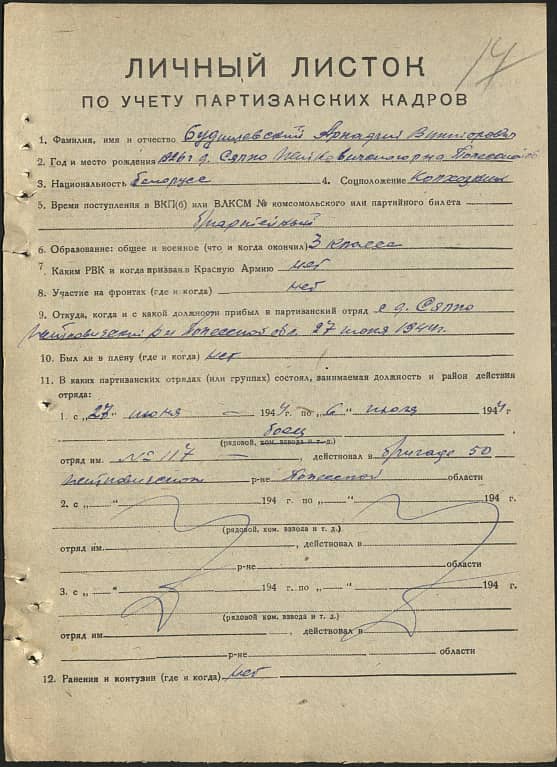 17
ЛИЧНЫЙ ЛИСТОК
ПО УЧЕТУ ПАРТИЗАНСКИХ КАДРОВ
1. Фамилия, имя и отчество Будишевский Аркадий Викторович
2. Год и место рождения 1926 г. д. Сяпно Полесской об
3. Национальность белорусс 4. Соцположение Колхозник
5. Время поступления в ВКП(б) или ВЛКСМ № комсомольского или партийного билета
б/партейный
6. Образование: общее и военное (что и когда окончил) 3 класса
7. Каким РВК и когда призван в Красную Армию нет
8. Участие на фронтах (где и когда) нет
9. Откуда, когда и с какой должности прибыл в партизанский отряд с д. Сяпно
Житковический р-н Полесской обл. 27 июня 1944 г.
10. Был ли в плену (где и когда) нет
11. В каких партизанских отрядах (или группах) состоял, занимаемая должность и район действия
отряда:
1. с „27“ июня 1944 г. по „6“ июля 1944 г.
боец
(рядовой, ком. взвода и т. д.)
отряд им. № 117, действовал в бригаде 50
Житковическом р-не Полесской области
2. с „ “ 194 г. по „ “ 194 г.
(рядовой, ком. взвода и т. д.)
отряд им. , действовал в
р-не области
3. с „ “ 194 г. по „ “ 194 г.
(рядовой, ком. взвода и т. д.)
отряд им. , действовал в
р-не области
12. Ранения и контузии (где и когда) нет